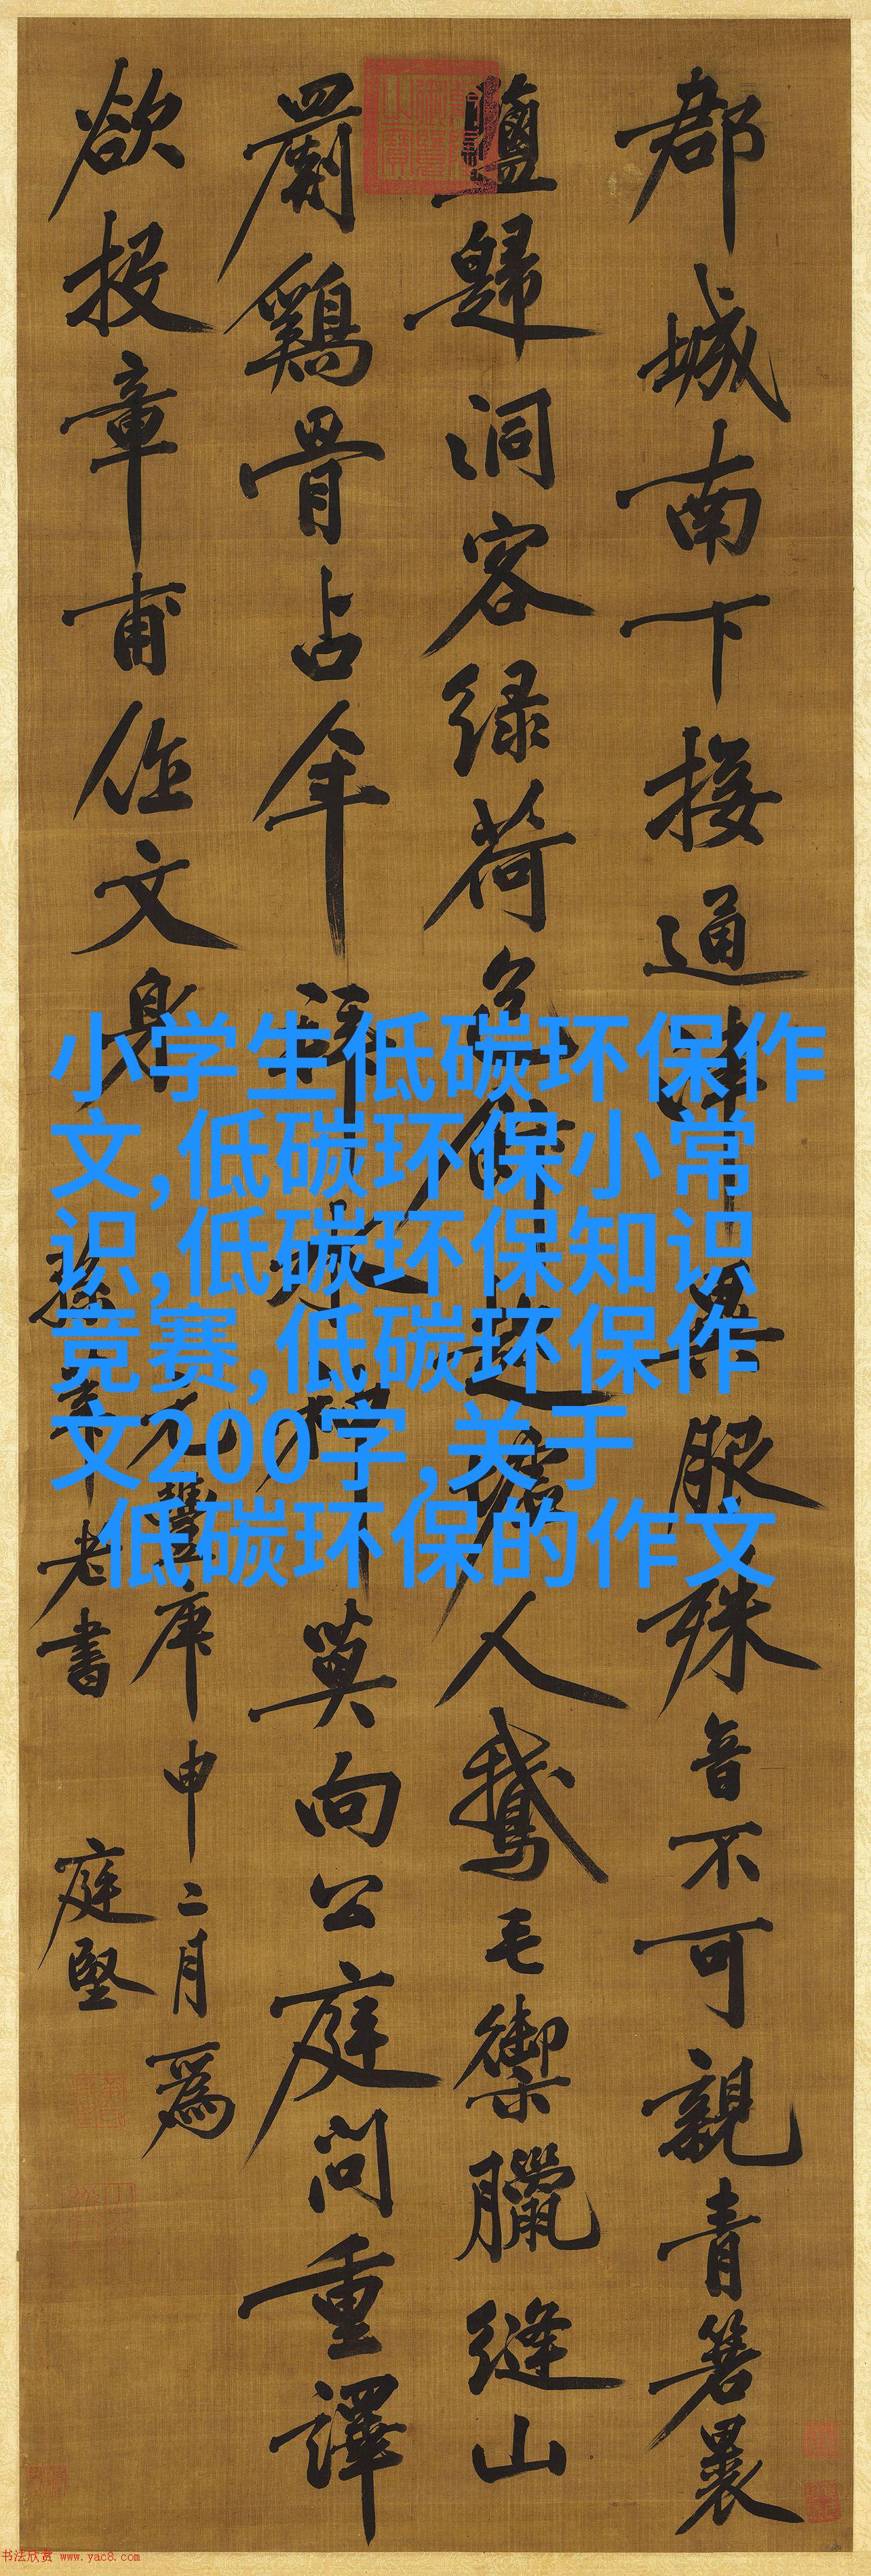 郡城南下接通津異服殊音不可親青箬裹
鹽歸洞客綠荷包飯趁墟人鵝毛御臘縫山
罽鷄骨占年拜水神莫向公庭問重譯
欲投章甫作文身
元豐庚申二月爲
孫莘老書
庭堅
小学生低碳环保作
文,低碳环保小常
识,低碳环保知识
竞赛,低碳环保作
文200字,关于
低碳环保的作文
书法欣赏 www.yac8.com